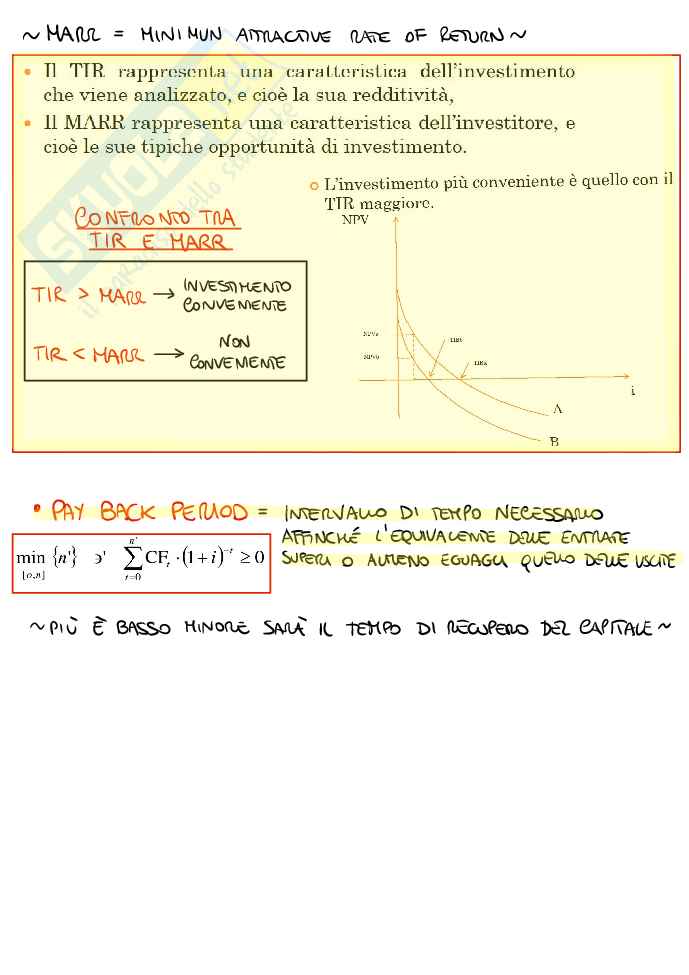 ~ MARR = MINIMUN ATTRACTIVE RATE OF RETURN ~
• Il TIR rappresenta una caratteristica dell'investimento
che viene analizzato, e cioè la sua redditività,
• Il MARR rappresenta una caratteristica dell'investitore, e
cioè le sue tipiche opportunità di investimento.
L'investimento più conveniente è quello con il
TIR maggiore.
CONFRONTO TRA
TIR E MARR
TIR > MARR → INVESTIMENTO
CONVENIENTE
TIR < MARR → NON
CONVENIENTE
NPV
NPVa
NPVb
i
A
B
• PAY BACK PERIOD = INTERVALLO DI TEMPO NECESSARIO
AFFINCHÉ L'EQUIVALENTE DELLE ENTRATE
SUPERI O ALMENO EGUAGLI QUELLO DELLE USCITE
min {n'} ∋' ∑ CFₜ · (1+i)⁻ᵗ ≥ 0
[o,n]
n'
t=0
~ PIÙ È BASSO MINORE SARÀ IL TEMPO DI RECUPERO DEL CAPITALE ~